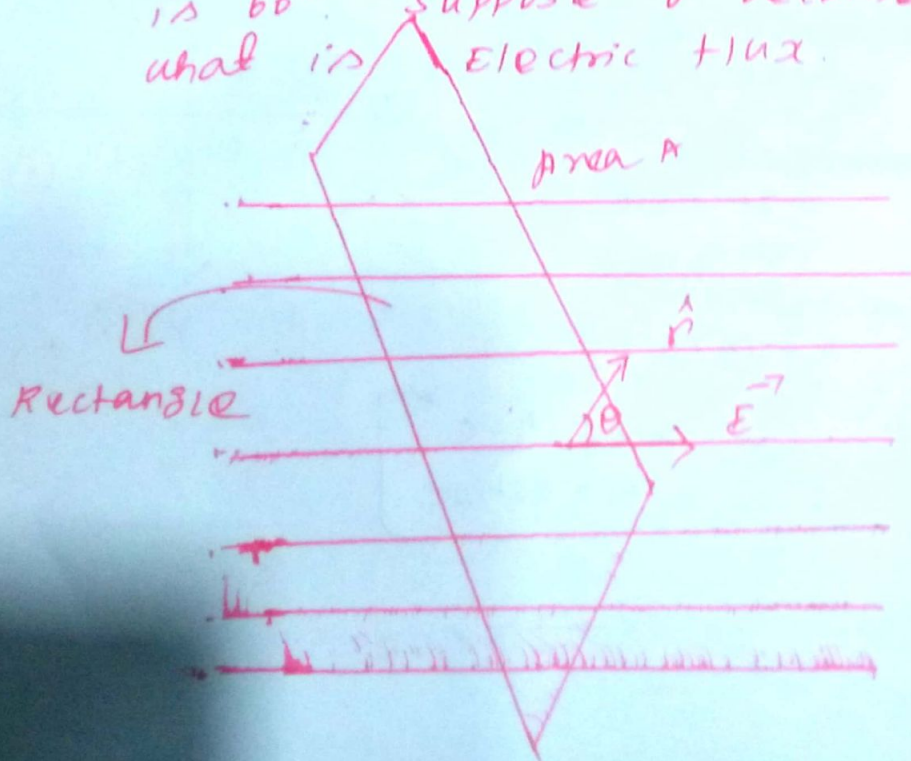 is 60 Suppose
what is Electric flux.
Area A
r̂
Rectangle
θ
E→